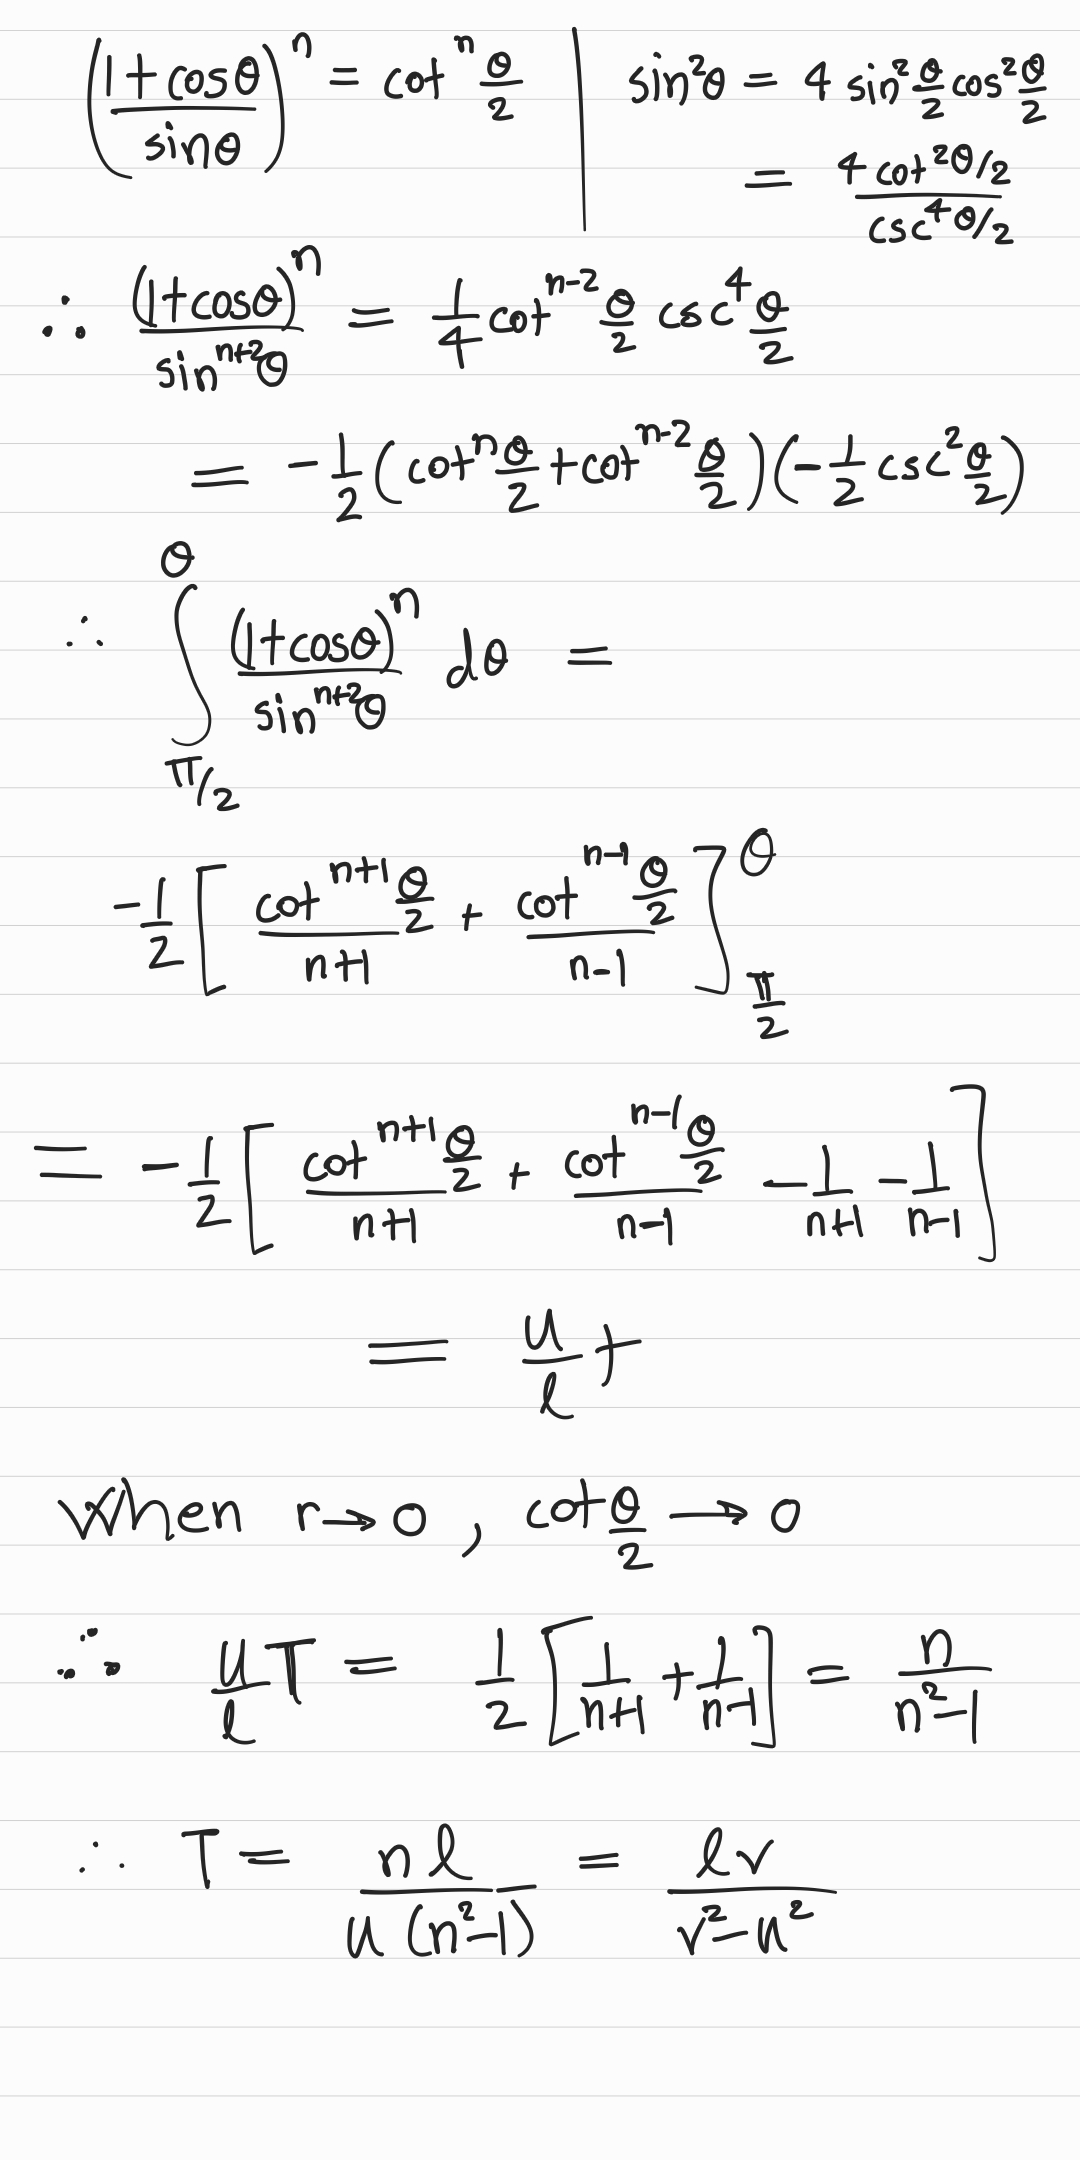 ((1+cosθ)/sinθ)^n = cot^n θ/2 | sin²θ = 4 sin² θ/2 cos² θ/2
= (4 cot² θ/2)/(csc⁴ θ/2)
∴ (1+cosθ)^n/sin^(n+2)θ = 1/4 cot^(n-2) θ/2 csc⁴ θ/2
= -1/2 (cot^n θ/2 + cot^(n-2) θ/2)(-1/2 csc² θ/2)
∴ ∫_(π/2)^θ (1+cosθ)^n/sin^(n+2)θ dθ =
-1/2 [(cot^(n+1) θ/2)/(n+1) + (cot^(n-1) θ/2)/(n-1)]_(π/2)^θ
= -1/2 [(cot^(n+1) θ/2)/(n+1) + (cot^(n-1) θ/2)/(n-1) - 1/(n+1) - 1/(n-1)]
= u/ℓ t
When r→0, cot θ/2 → 0
∴ u/ℓ T = 1/2 [1/(n+1) + 1/(n-1)] = n/(n²-1)
∴ T = nℓ/(u(n²-1)) = ℓv/(v²-u²)